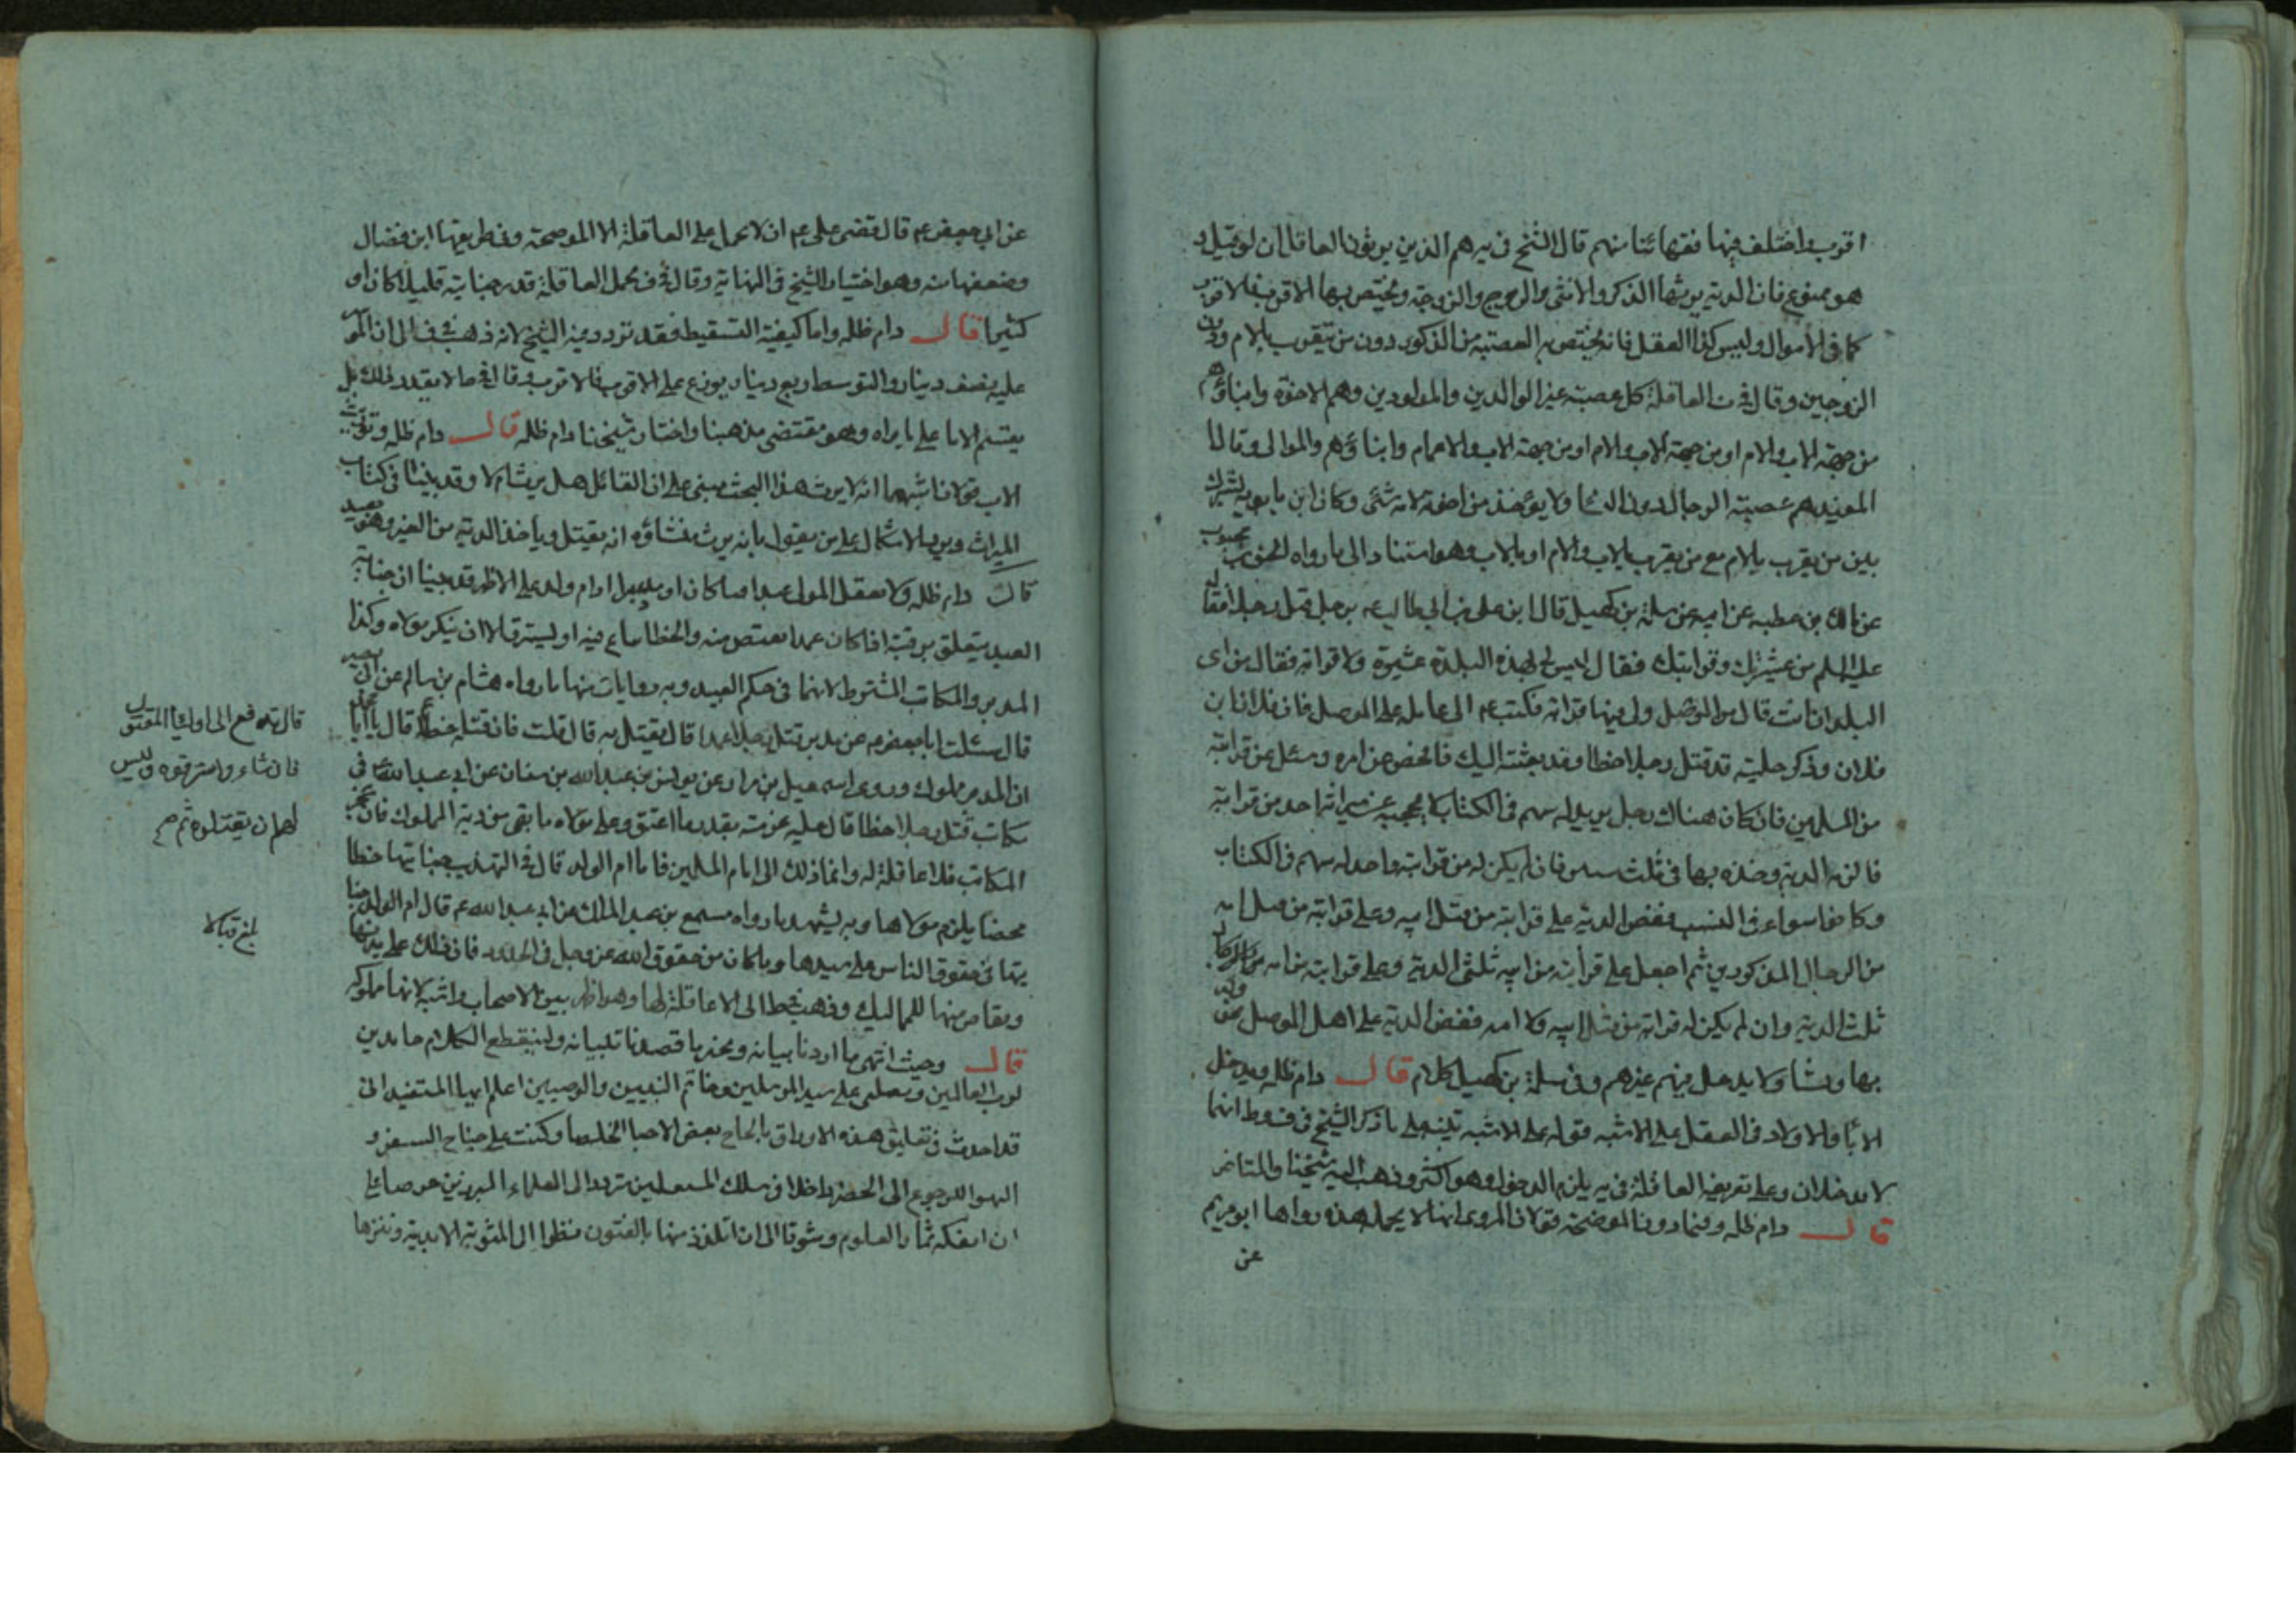 اقرب واختلف فيها فقهائنا منهم قال الشيخ في يه هم الذين يرثون القاتل ان لو قتل و
هو ممنوع فان الدية يرثها الذكر والانثى والزوج والزوجة ويختص بها الاقرب فالاقرب
كما في الاموال وليس كذا العقل فانه يختص به العصبة من الذكور دون من يتقرب بالام ودون
الزوجين وقال في ف العاقلة كل عصبة غير الوالدين والمولودين وهم الاخوة وابناؤهم
من جهة الاب والام او من جهة الاب والاعمام وابناؤهم والموالى وقال
المفيد هم عصبة الرجال دون النسا ولا يؤخذ من اخوته لامه شئ وكان ابن بابويه يشرك
بين من يقرب بالام مع من يقرب بالاب والام او بالاب وهو استناد الى ما رواه الحسن بن محبوب
عن مالك بن عطيه عن ابيه عن سلمة بن كهيل قال اتى على بن ابي طالب عم برجل قتل رجلا فقال له
عليه السلم من عشيرتك وقرابتك فقال ليس لي بهذه البلدة عشيرة ولا قرابة فقال من اى
البلدان انت قال من الموصل ولى بها قرابة فكتب عم الى عامله على الموصل فان فلان بن
فلان وذكر حليته قد قتل رجلا خطا وقد بعثته اليك فافحص عن امره وسئل عن قرابته
من المسلمين فان كان هناك رجل يرثه له سهم في الكتاب لا يحجبه عن ميراثه احد من قرابته
فالزمه الدية وخذه بها في ثلث سنين فان لم يكن له من قرابته واحد له سهم في الكتاب
وكانوا سواء في النسب ففض الدية على قرابته من قبل ابيه وعلى قرابته من قبل امه
من الرجال المذكورين ثم اجعل على قرابته من ابيه ثلثى الدية وعلى قرابته من امه من الرجال
ثلث الدية وان لم يكن له قرابة من قبل ابيه ولا امه ففض الدية على اهل الموصل ممن ولد
بها ونشا ولا يدخل فيهم غيرهم وفي سلمة بن كهيل كلام قال دام ظله ويدخل
الابا والاولاد في العقل على الاشبه قوله على الاشبه تنبيه على ما ذكر الشيخ في ف وط انهما
لا يدخلان وعلى تعريف العاقلة في يه يلزم الدخول وهو اكثر وذهب اليه شيخنا والمتاخر
قال دام ظله وفيما دون الموضحة قولان المروى انها لا يحمله هذه رواها ابو مريم
عن
عن ابي جعفر عم قال قضى على عم ان لا يحمل على العاقلة الا الموضحة وفي طريقها ابن فضال
وضعفها منه وهو اختيار الشيخ في النهاية وقال في ف يحمل العاقلة قدر جنايته قليلا كان او
كثيرا قال دام ظله واما كيفية التقسيط فقد تردد فيه الشيخ لانه ذهب في ف الى ان الموسر
عليه نصف دينار والمتوسط ربع دينار يوزع على الاقرب فالاقرب وقال في موضع لا يقدر ذلك بل
يقسم الامام على ما يراه وهو مقتضى مذهبنا واختار شيخنا دام ظله قال دام ظله وتورث
الاب قولان اشبههما انه لا يرث هذا البحث يبنى على ان القاتل هل يرث ام لا وقد بيننا في كتاب
الميراث ويرد الاشكال على من يقول بانه يرث منشاؤه انه يقتل وياخذ الدية من الغير وهو بعيد
قال دام ظله ولا يعقل المولى عبدا كان او مدبرا او ام ولد على الاظهر قد بينا ان جناية
العبد يتعلق برقبته اذا كان عمدا يقتص منه والخطا يباع فيه او ليسترق الا ان يفكه مولاه وكذا
المدبر والمكاتب المشروط لانهما في حكم العبد وبه روايات منها ما رواه هشام بن سالم عن ابي بصير
قال سئلت ابا جعفر عم عن مدبر قتل رجلا عمدا قال يقتل به قال قلت فان قتله خطا قال يا ابا محمد
ان المدبر مملوك وروى اسمعيل بن مرار عن يونس بن عبدالله بن سنان عن ابي عبدالله ع في
مكاتب قتل رجلا خطا قال عليه من ديته بقدر ما اعتق وعلى مولاه ما بقى من دية المملوك فان عجز
المكاتب فلا عاقلة له وانما ذلك الى امام المسلمين فاما ام الولد قال في التهذيب جنايتها خطا
محضا يلزم مولاها وبه يشهد ما رواه مسمع بن عبد الملك عن ابي عبد الله عم قال ام الولد جنا
يتها في حقوق الناس على سيدها وما كان من حقوق الله عز وجل في الحدود فان ذلك على بدنها
ويقاص منها للمماليك وذهب في ط الى الا عاقلة لها وهو اظهر بين الاصحاب واشبه لانها مملوكة
قال وحيث انتهى ما اردنا بيانه ونجز ما قصدنا تبيانه ولنقطع الكلام حامدين
لرب العالمين ونصلى على سيد المرسلين وخاتم النبيين والوصيين اعلم ايها المستفيد انى
قد اخذت في تعليق هذه الاوراق بالحاح بعض الاحبا الخلصا وكنت على جناح السفر و
الرجوع الى الحضر داخلا في سلك المستعدين مترددا الى العلماء المبرزين حرصا على
ان اتفكه بثمار العلوم وشوقا الى ان اتلذذ منها بالفنون منظوا الى المثوبة الابدية وتنزها
قال تدفع الى اولياء المقتول
فان شاء وا استرقوه وليس
لهم ان يقتلوه ثم صح